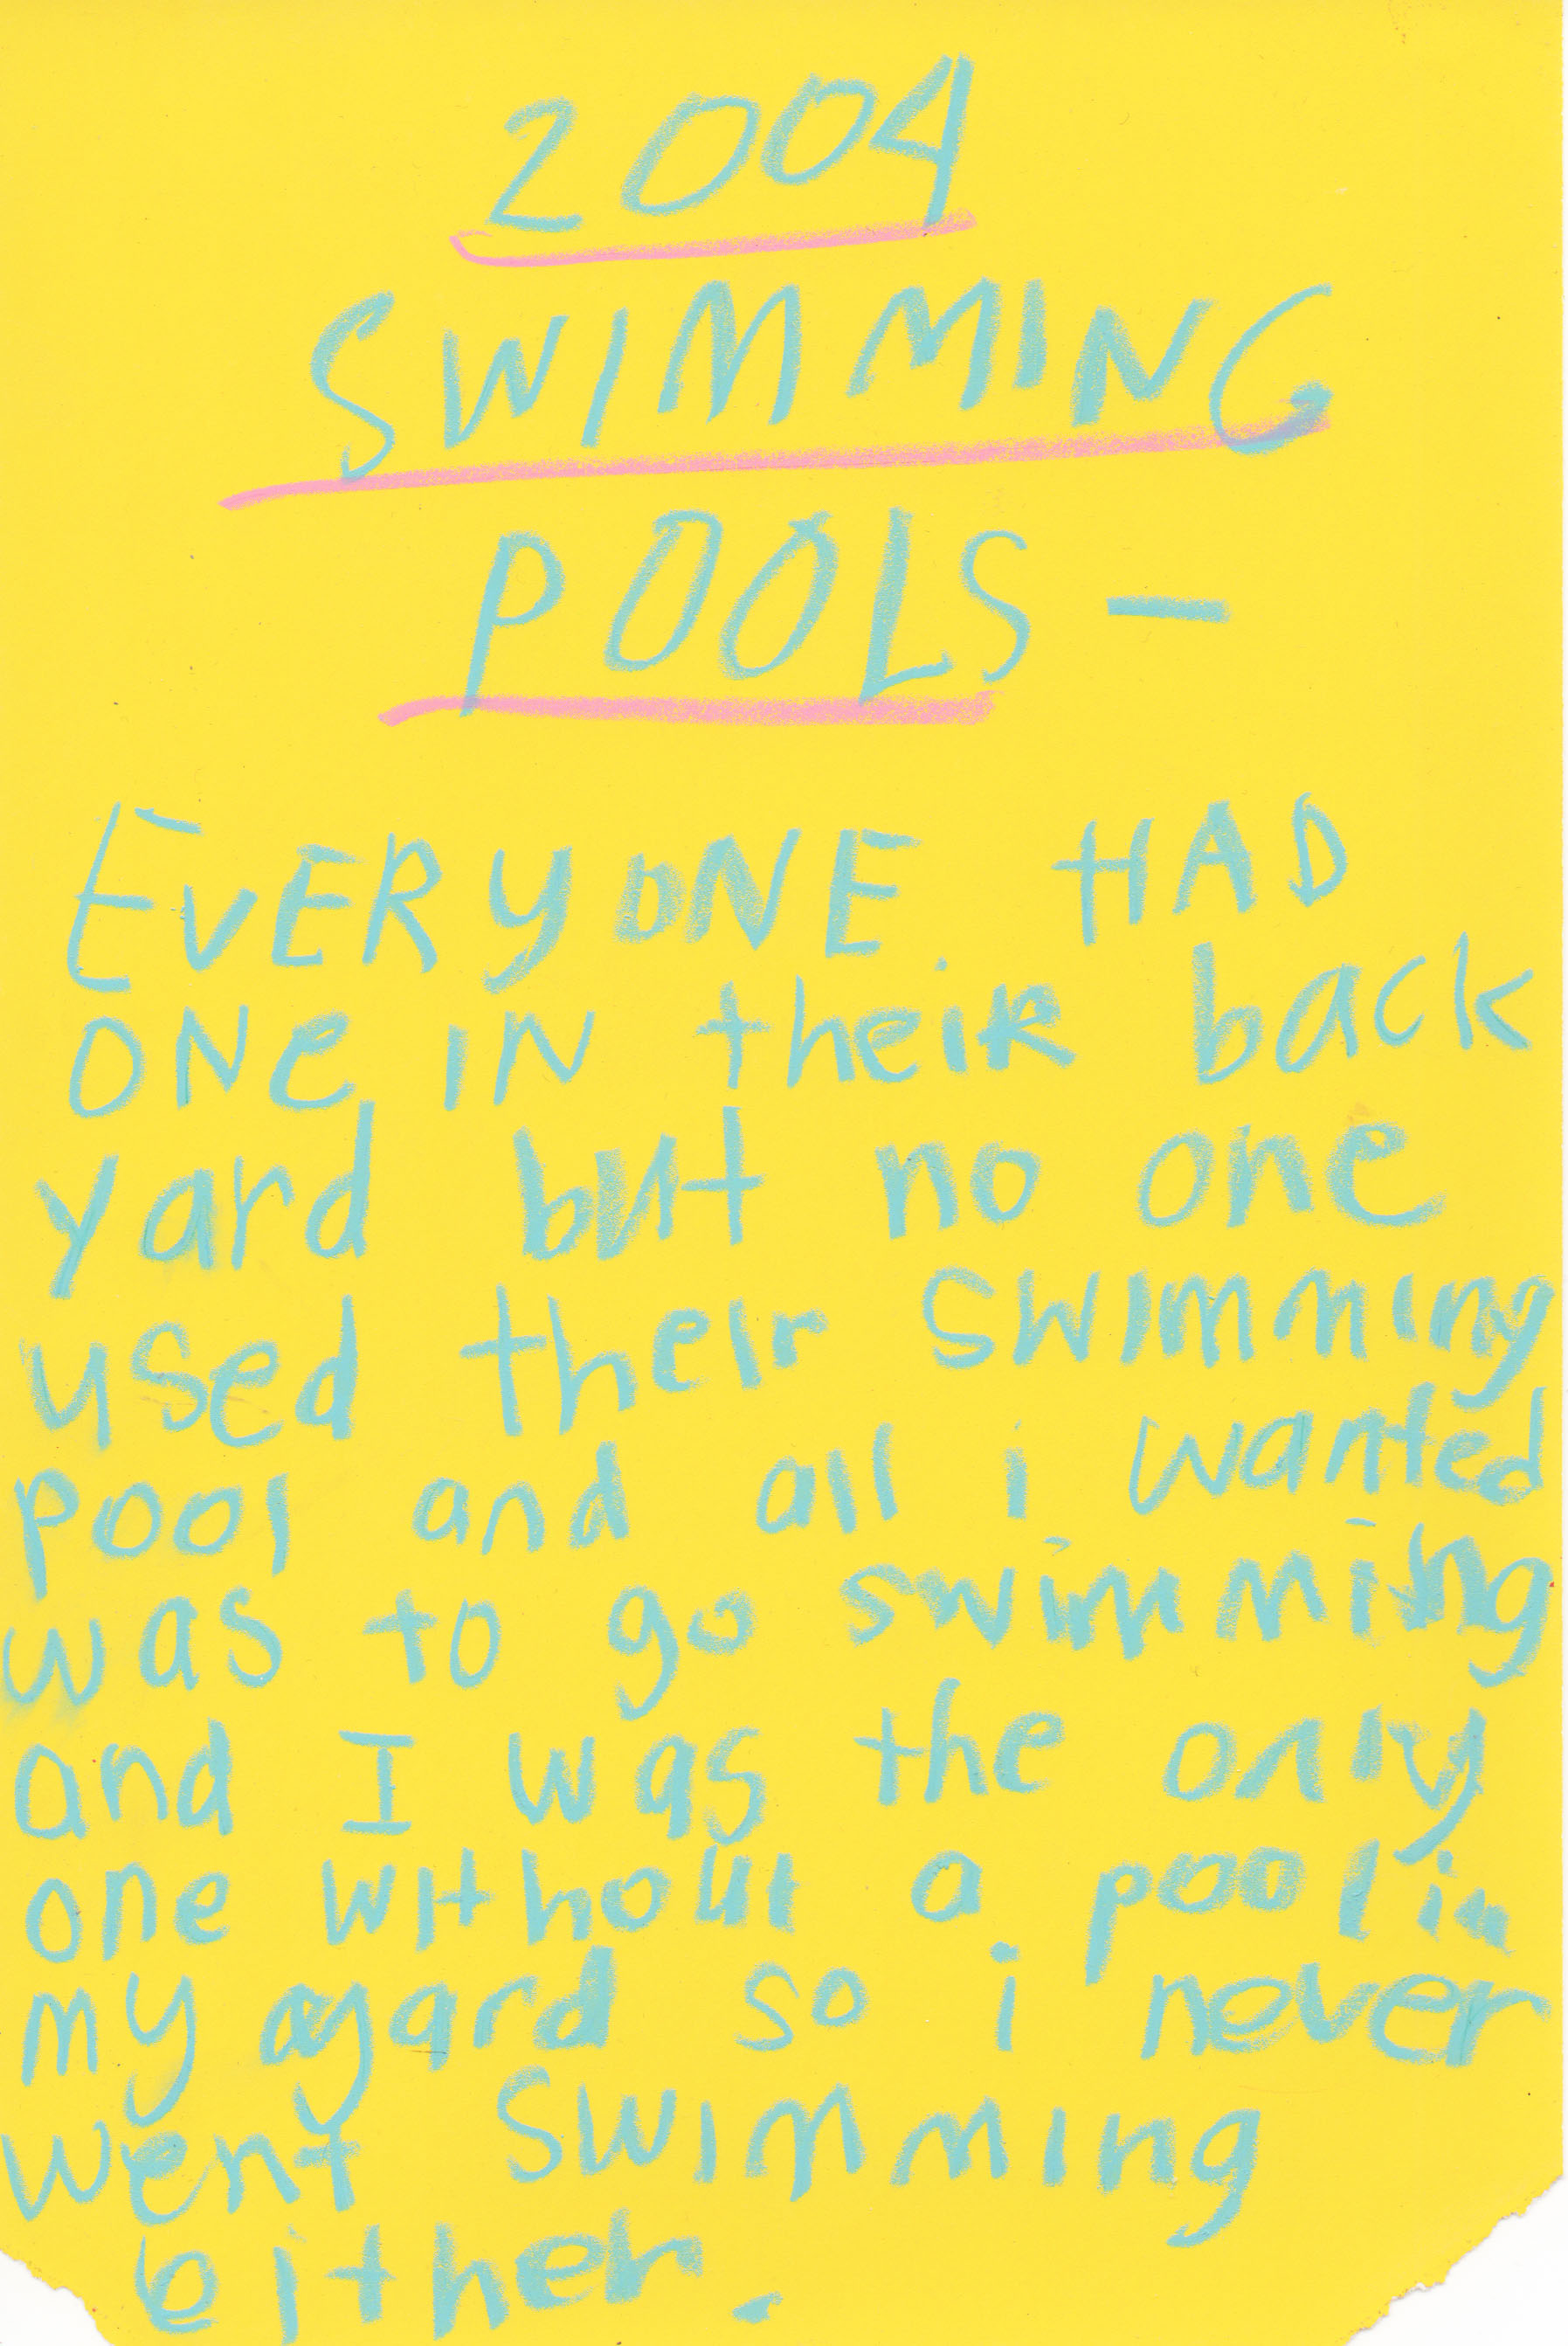 2004
SWIMMING
POOLS -
EVERYONE HAD
ONe IN theiR back
yard but no one
used their swimming
pool and all i wanted
was to go swimming
and I was the only
one without a pool in
my yard so i never
went swimming
either.